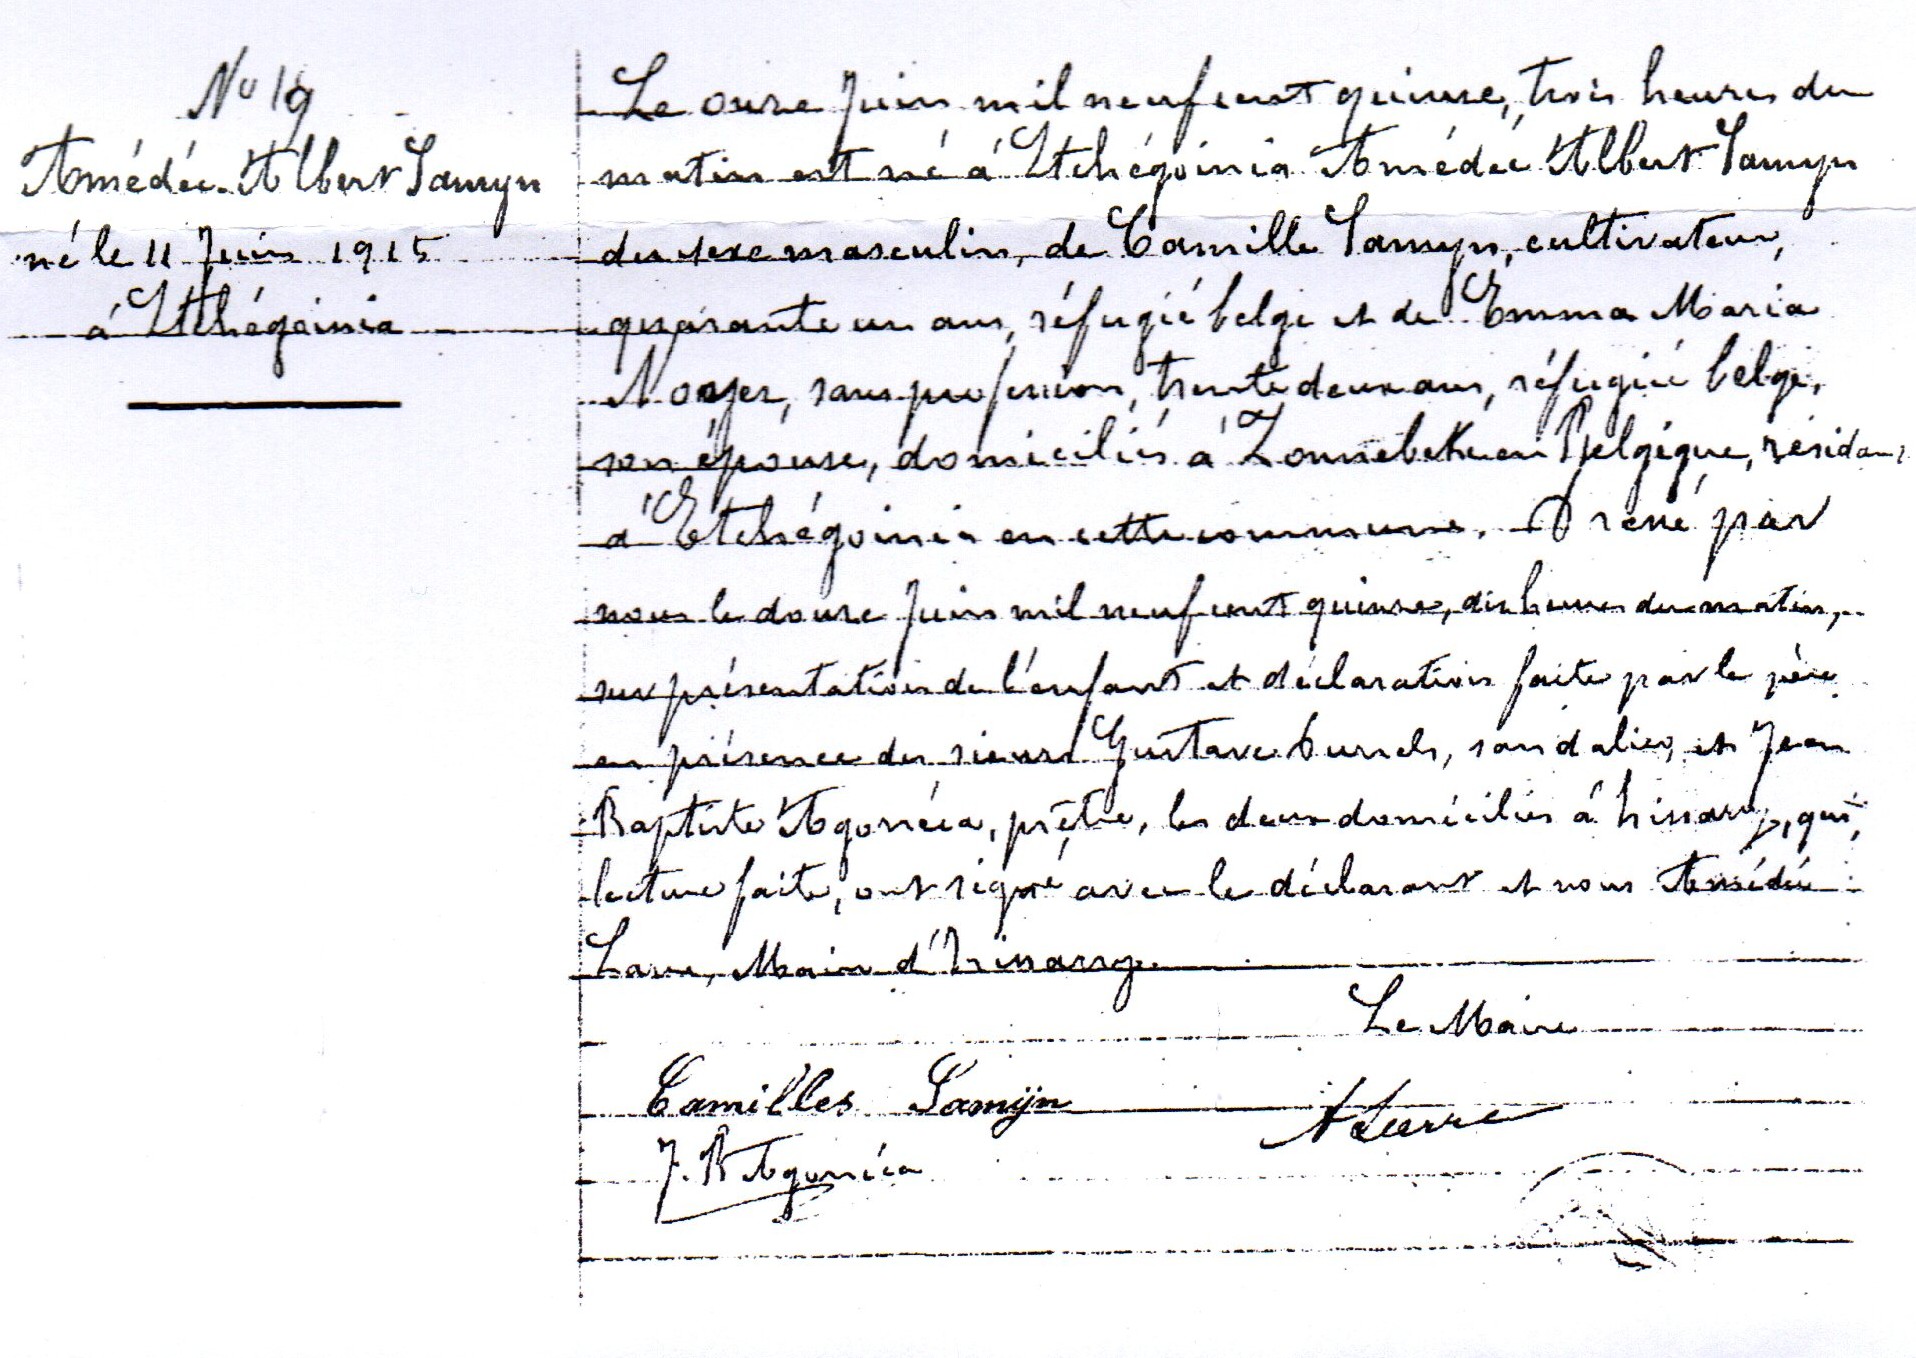 No 19
Amédée Albert Samyn
né le 11 Juin 1915
à Etchégoinia
Le onze Juin mil neuf cent quinze, trois heures du
matin est né à Etchégoinia Amédée Albert Samyn
du sexe masculin, de Camille Samyn, cultivateur,
quarante un ans, réfugié belge et de Emma Maria
sans profession, trente deux ans, réfugiée belge,
son épouse, domiciliés à Zonnebeke en Belgique, résidant
à Etchégoinia en cette commune. Dressé par
nous le douze Juin mil neuf cent quinze, dix heures du matin,
sur présentation de l'enfant et déclaration faite par le père
en présence des sieurs Gustave sandalier, et Jean
Baptiste Agorréca, prêtre, les deux domiciliés à Irissarry, qui,
lecture faite, ont signé avec le déclarant et nous Amédée
Maire d'Irissarry.
Le Maire
Camilles Samijn
J. B Agorréca